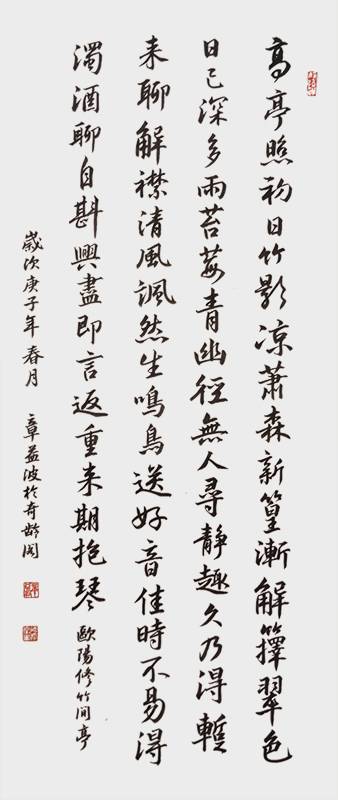 高亭照初日竹影凉蕭森新篁漸解籜翠色
日已深多雨苔莓青幽徑無人尋静趣久乃得暫
来聊解襟清風颯然生鳴鳥送好音佳時不易得
濁酒聊自斟興盡即言返重来期抱琴 歐陽修竹間亭
歲次庚子年春月 章益波於奇齡閣